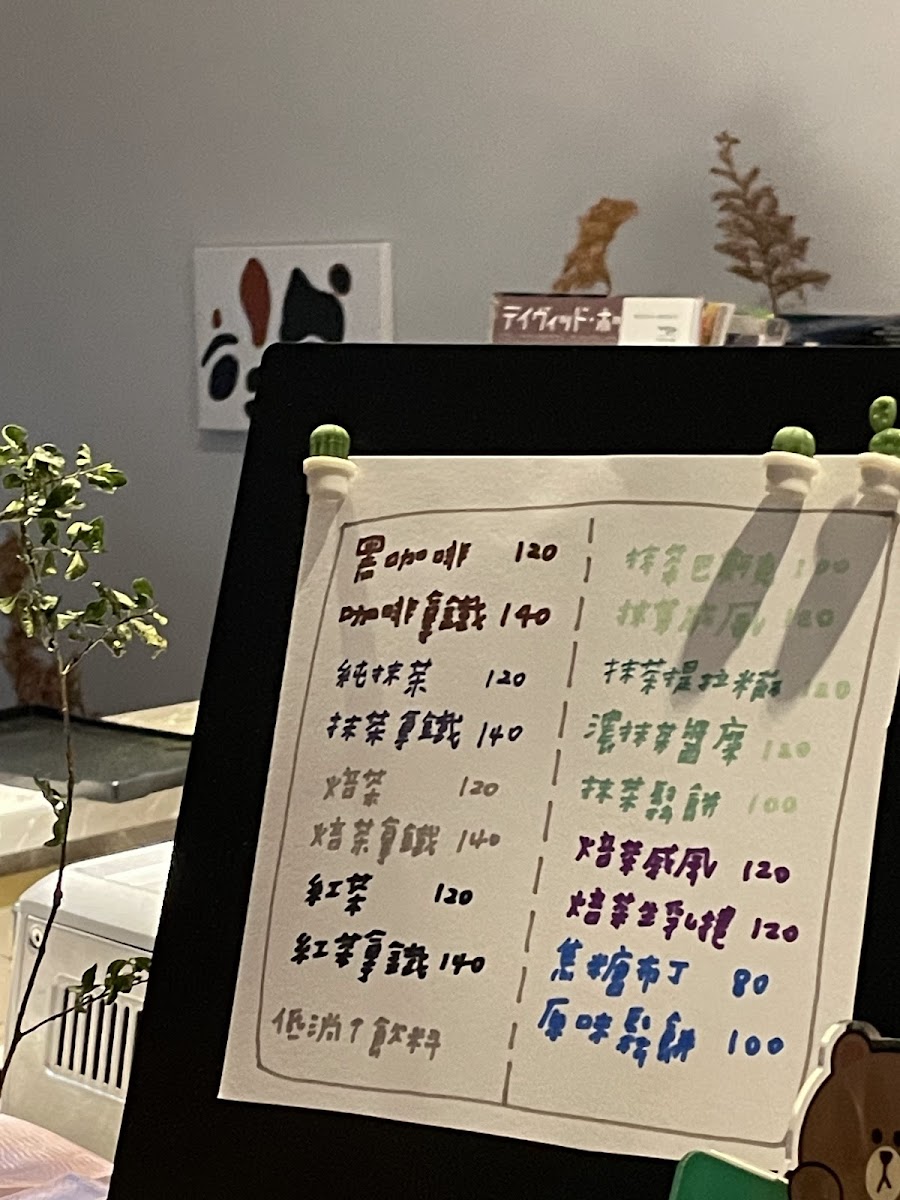 デイヴィッド・ホ
黑咖啡 120
咖啡拿鐵 140
純抹茶 120
抹茶拿鐵 140
焙茶 120
焙茶拿鐵 140
紅茶 120
紅茶拿鐵 140
低消1飲料
抹茶巴斯克 100
抹茶戚風 120
抹茶提拉米蘇 120
濃抹茶醬摩 120
抹茶鬆餅 100
焙茶戚風 120
焙茶生乳捲 120
焦糖布丁 80
原味鬆餅 100